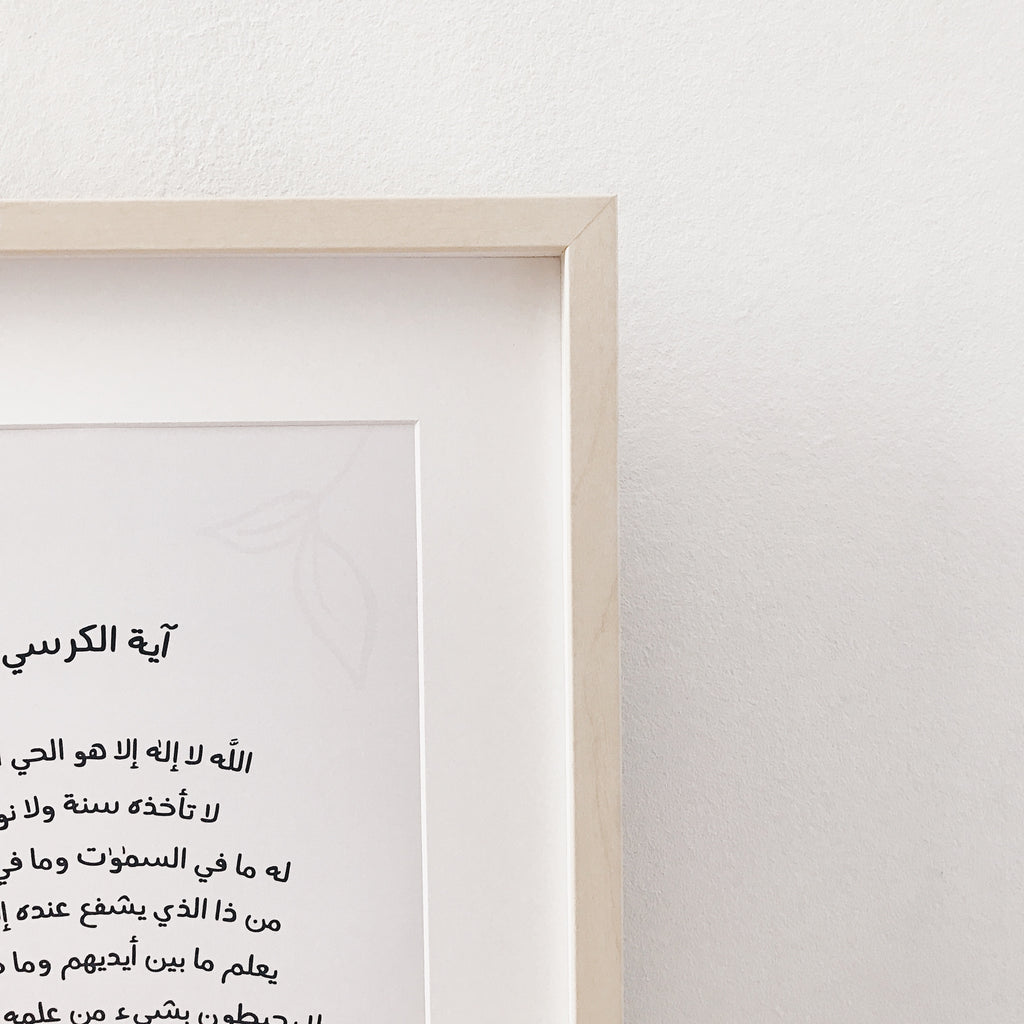 آية الكرسي
اللَّه لا إلٰه إلا هو الحي
لا تأخذه سنة ولا
له ما في السمٰوٰت وما في
من ذا الذي يشفع عنده
يعلم ما بين أيديهم وما
يحيطون بشيء من علمه